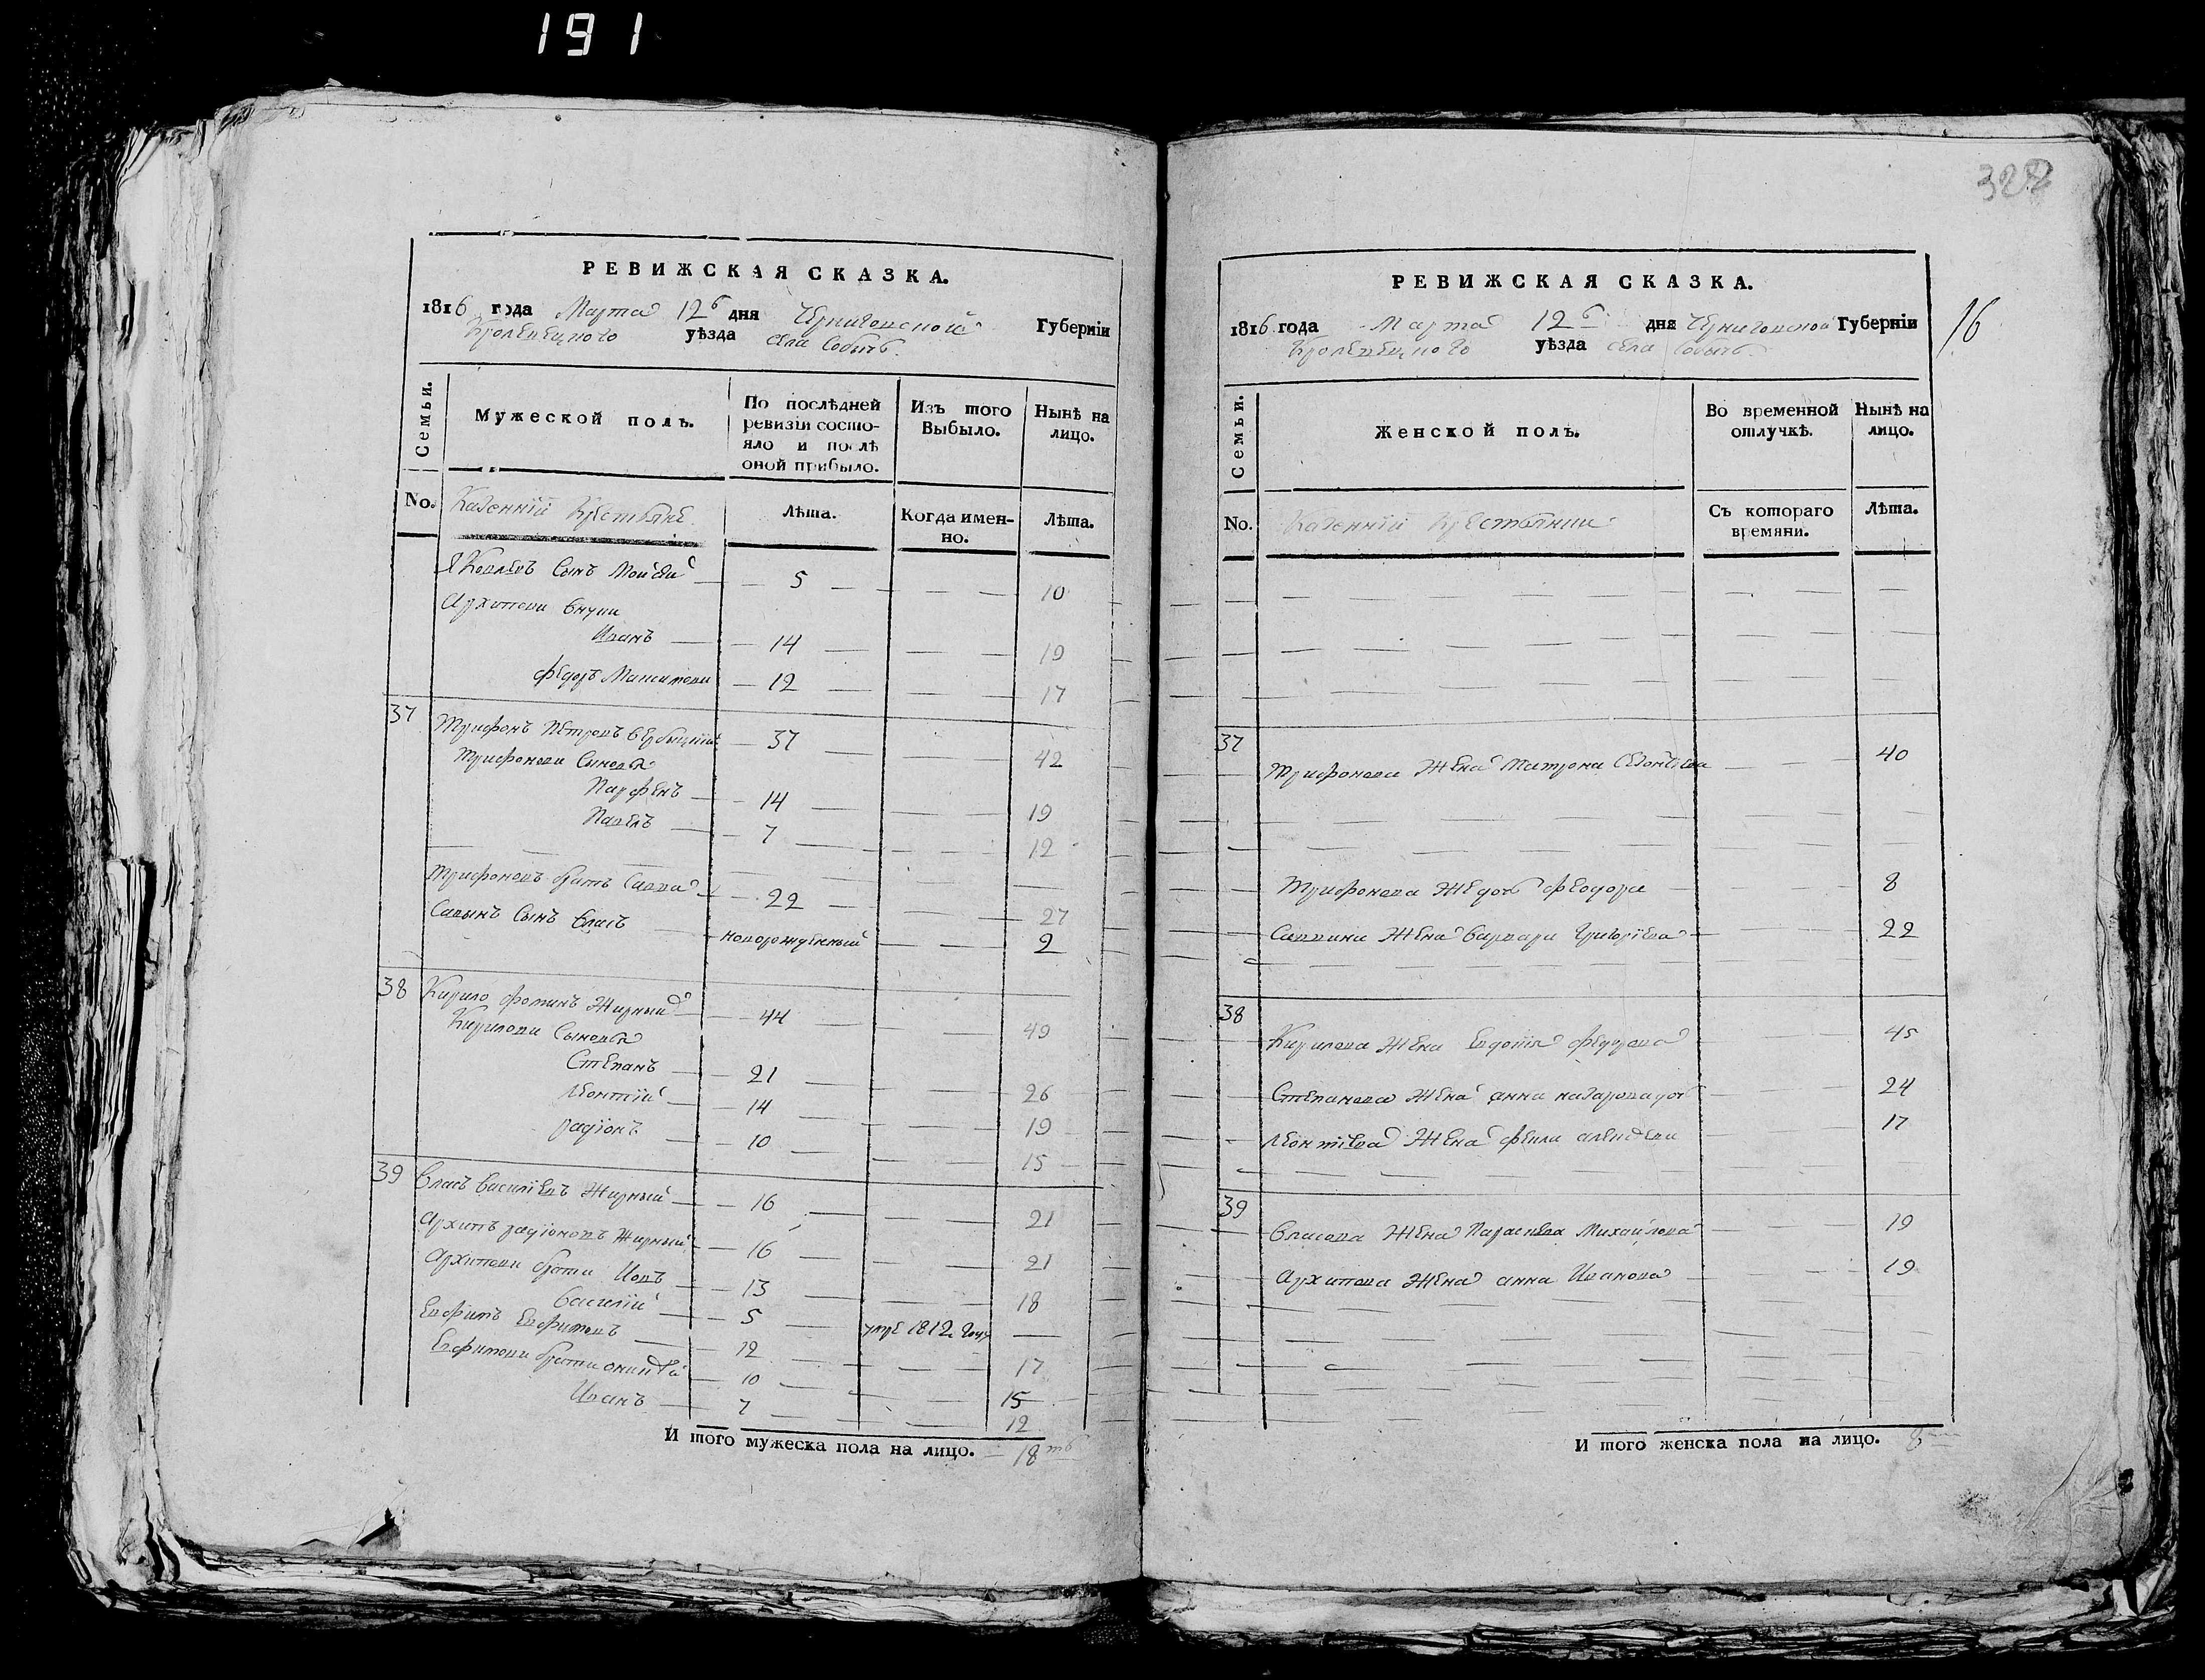 191
322
16
РЕВИЖСКАЯ СКАЗКА.
1816 года Марта 12го дня Черниговской Губерніи
Кролевецкого уѣзда села Собичь.
Семьи.
Мужеской полъ.
По послѣдней ревизіи состояло и послѣ оной прибыло.
Изъ того Выбыло.
Нынѣ на лицо.
No. Казенніи Крестьяне
Лѣта.
Когда именно.
Лѣта.
Яковлевъ Сынъ Моисей — 5 — 10
Архипови внуки
Иванъ — 14 — 19
Федоръ Максимови — 12 — 17
37 Трифонъ Петровъ Вербицкій — 37 — 42
Трифонови Сыновья
Парфенъ — 14 — 19
Павелъ — 7 — 12
Трифоновъ братъ Савва — 22 — 27
Савынъ Сынъ Власъ — новорожденный — 2
38 Кирило Фоминъ Жирный — 44 — 49
Кирилови Сыновья
Степанъ — 21 — 26
Леонтій — 14 — 19
Радіонъ — 10 — 15
39 Власъ Василіевъ Жирный — 16 — 21
Архипъ Радіоновъ Жирный — 16 — 21
Архипови брати Иовъ — 13 — 18
Василій — 5 — умре 1812 году —
Евфимъ Евфимовъ — 12 — 17
Евфимови брати — 10 — 15
Иванъ — 7 — 12
И того мужеска пола на лицо. — 18ть
РЕВИЖСКАЯ СКАЗКА.
1816 года Марта 12го дня Черниговской Губерніи
Кролевецкого уѣзда села Собичь.
Семьи.
Женской полъ.
Во временной отлучкѣ.
Нынѣ на лицо.
No. Казенніи Крестьянки
Съ котораго времяни.
Лѣта.
37 Трифонова Жена Матрона — 40
Трифонова Же дочь Феодора — 8
Саввина Жена Варвара Григоріева — 22
38 Кирилова Жена Евдокія Федорова — 45
Степанова Жена Анна Назарова дочь — 24
Леонтіева Жена Фекла Алексѣева — 17
39 Власова Жена Параскева Михайлова — 19
Архипова Жена Анна Иванова — 19
И того женска пола на лицо. 8